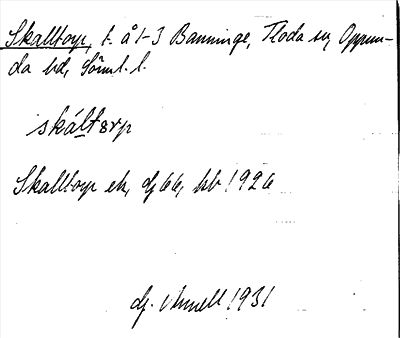 Skalltorp, t. å 1-3 Banninge, Floda sn, Oppun-
da hd, Sörml. l.
skáltɐrp
Skalltorp ek, dj 66, hb 1926
dj. Ahnell 1931